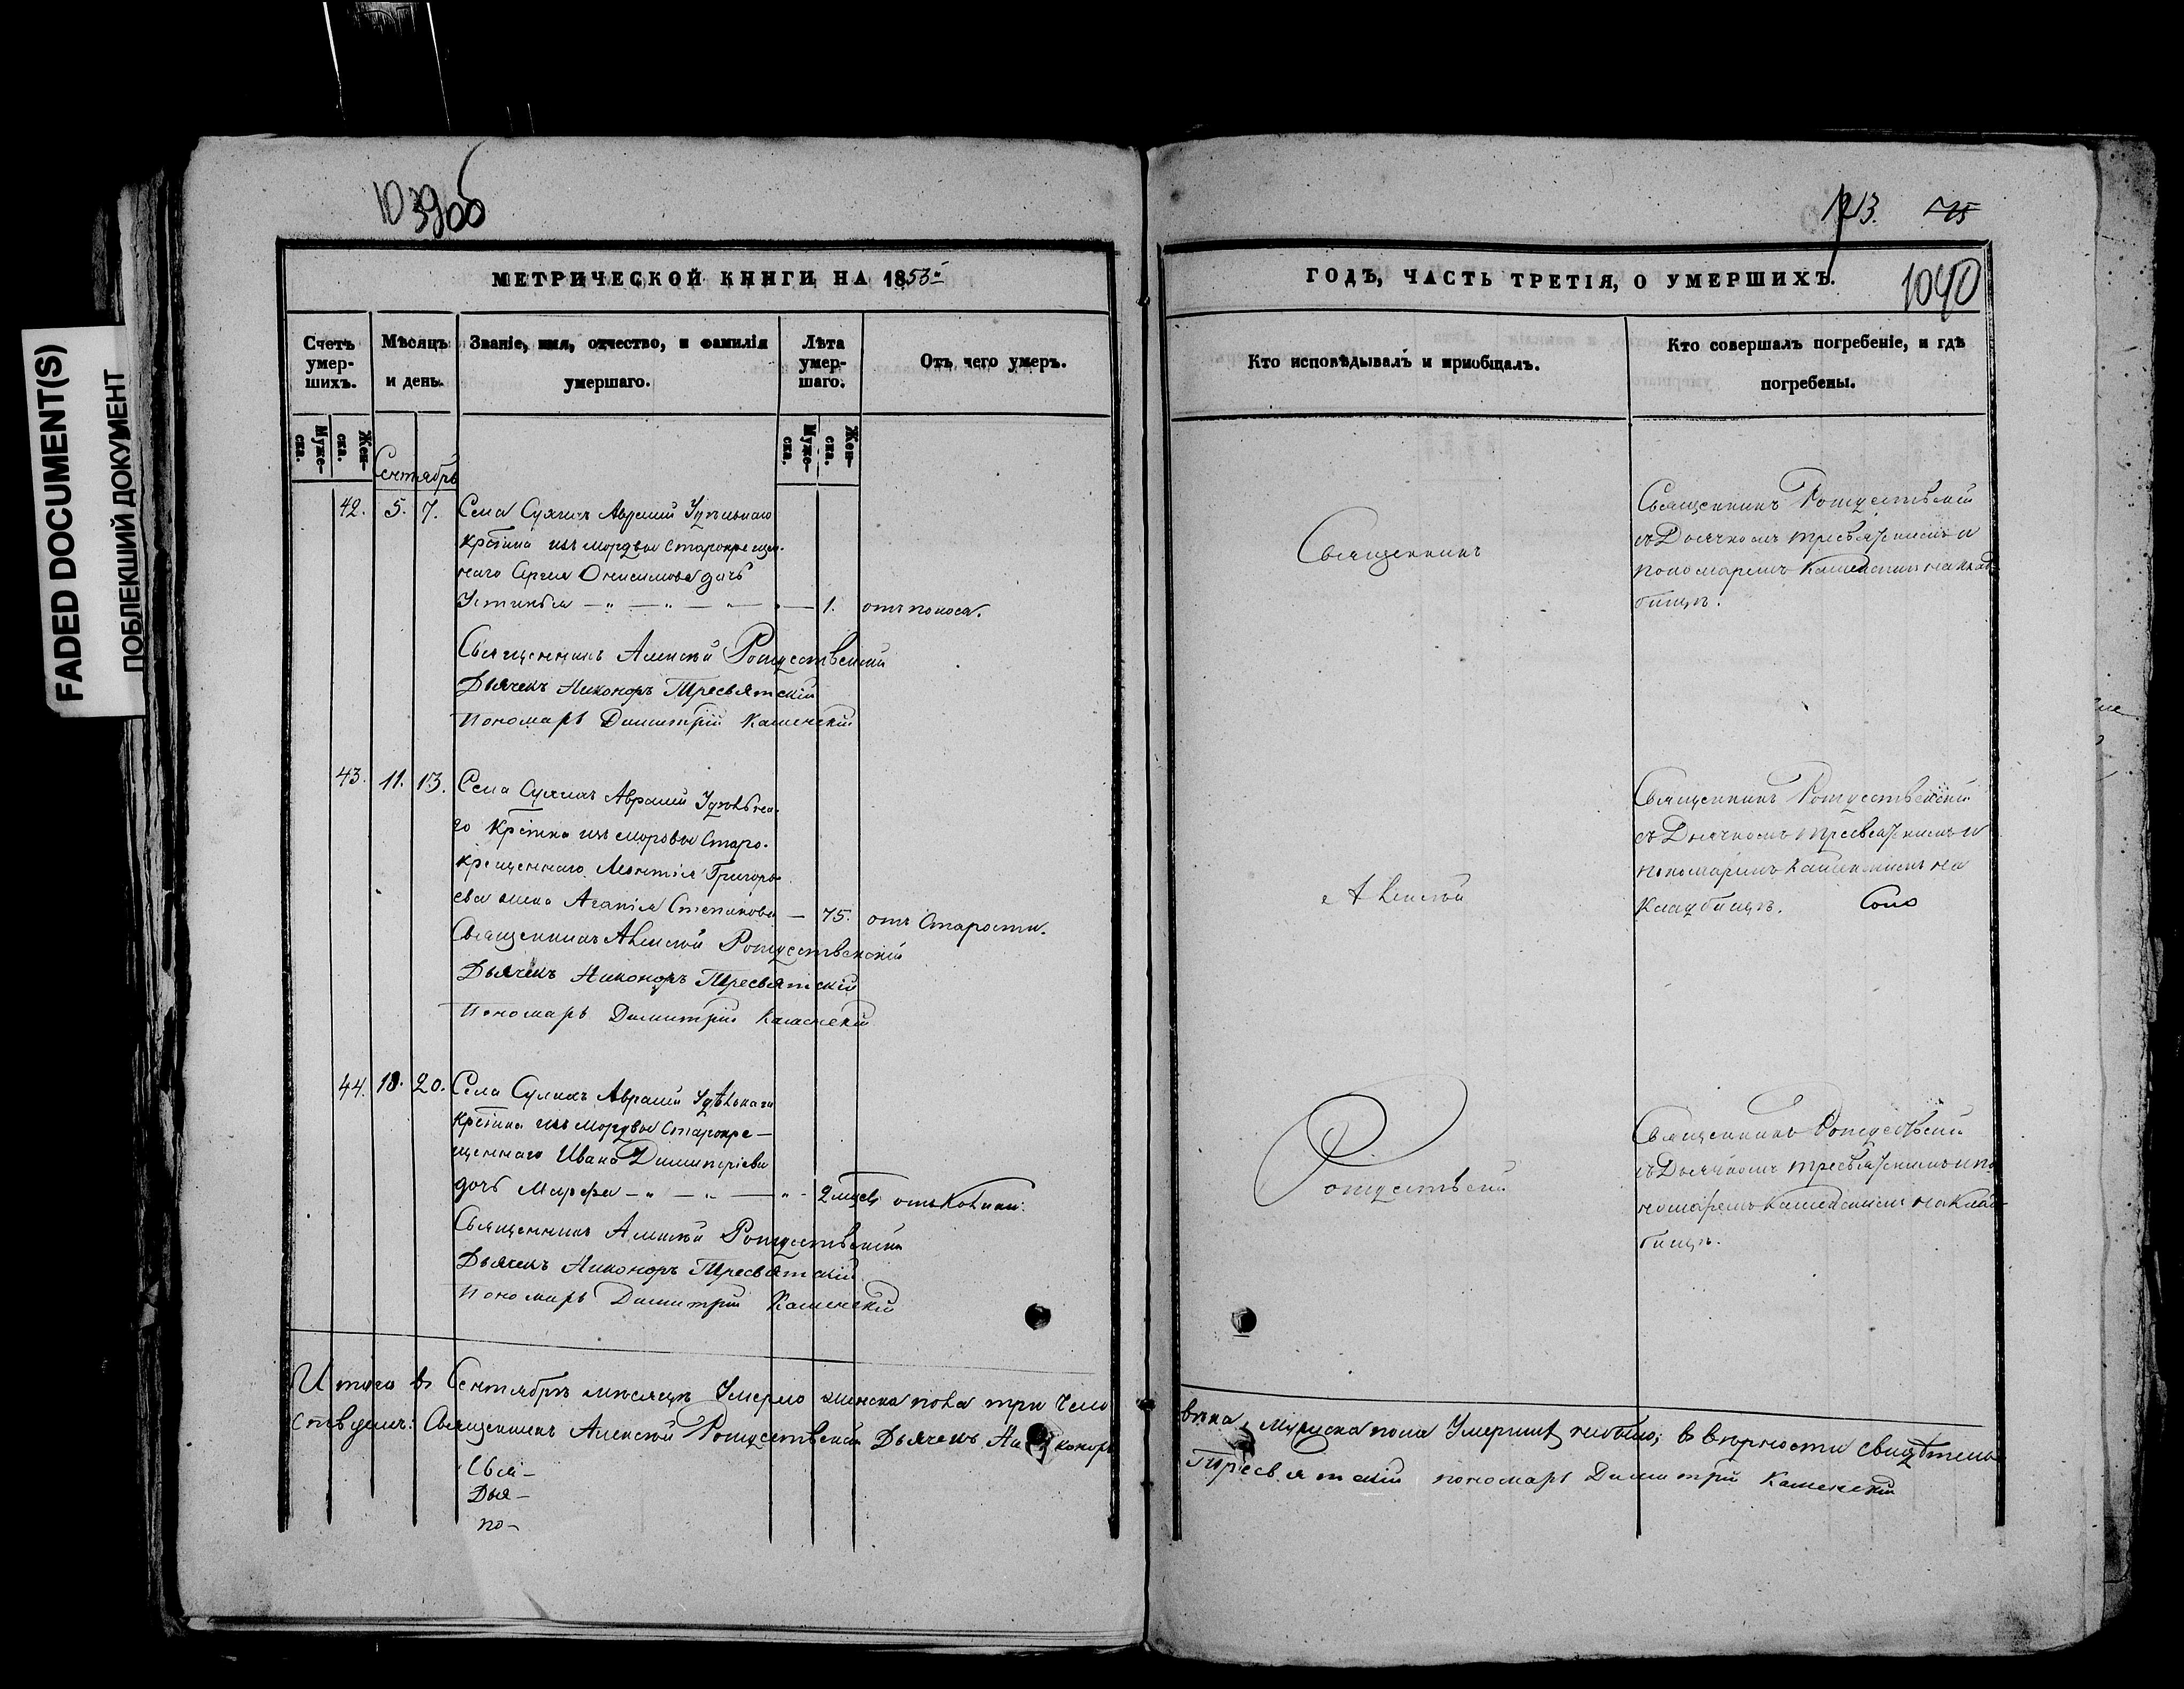 FADED DOCUMENT(S)
ПОБЛЕКШИЙ ДОКУМЕНТ
1039об
МЕТРИЧЕСКОЙ КНИГИ НА 1853й
Счетъ умер-шихъ.
Мужеска.
Женска.
Мѣсяцъ и день.
Званіе, имя, отчество, и фамилія умершаго.
Лѣта умер-шаго.
Мужеска.
Женска.
Отъ чего умеръ.
Сентябрь
42. 5. 7. Села Авраміи Удѣльнаго
крестіна изъ мордвы старокрещен-
наго Онисимова дочь
Устинья — „ — „ — „ — 1. отъ поноса.
Священникъ Алексѣй Рождественскій
Дьячекъ Никоноръ Тресвятскій
Пономарь Димитрій Каменскій
43. 11. 13. Села Авраміи Удѣльна-
го крестіна изъ мордвы старо-
крещеннаго Леонтія Григорь-
ева жена Агапія Степанова — 75. отъ старости.
Священникъ Алексѣй Рождественскій
Дьячекъ Никоноръ Тресвятскій
Пономарь Димитрій Каменскій
44. 18. 20. Села Авраміи Удѣльнаго
крестіна изъ мордвы старокре-
щеннаго Ивана Димитріева
дочь Марфа — „ — „ — „ - 2 мцев отъ
Священникъ Алексѣй Рождественскій
Дьячекъ Никоноръ Тресвятскій
Пономарь Димитрій Каменскій
Итого въ Сентябрѣ мѣсяцѣ Умерло женска пола три чело
ствуемъ: Священникъ Алексѣй Рождественскій Дьячекъ Никоноръ
Свя-
Дья-
по-
1213. 715
ГОДЪ, ЧАСТЬ ТРЕТІЯ, О УМЕРШИХЪ.
1040
Кто исповѣдывалъ и приобщалъ.
Кто совершалъ погребеніе, и гдѣ погребены.
Священникъ
Алексѣй
Рождественскій
Священникъ Рождественскій
съ Дьячкомъ Тресвятскимъ и
пономаремъ Каменскимъ на клад-
бищѣ.
Священникъ Рождественскій
съ Дьячкомъ Тресвятскимъ и
пономаремъ Каменскимъ на
Кладбищѣ.
Священникъ Рождественскій
съ Дьячкомъ Тресвятскимъ и по-
номаремъ Каменскимъ на Клад-
бищѣ.
вѣка, мужска пола Умершихъ небыло; въ вѣрности свидѣтель
Тресвятскій пономарь Димитрій Каменскій